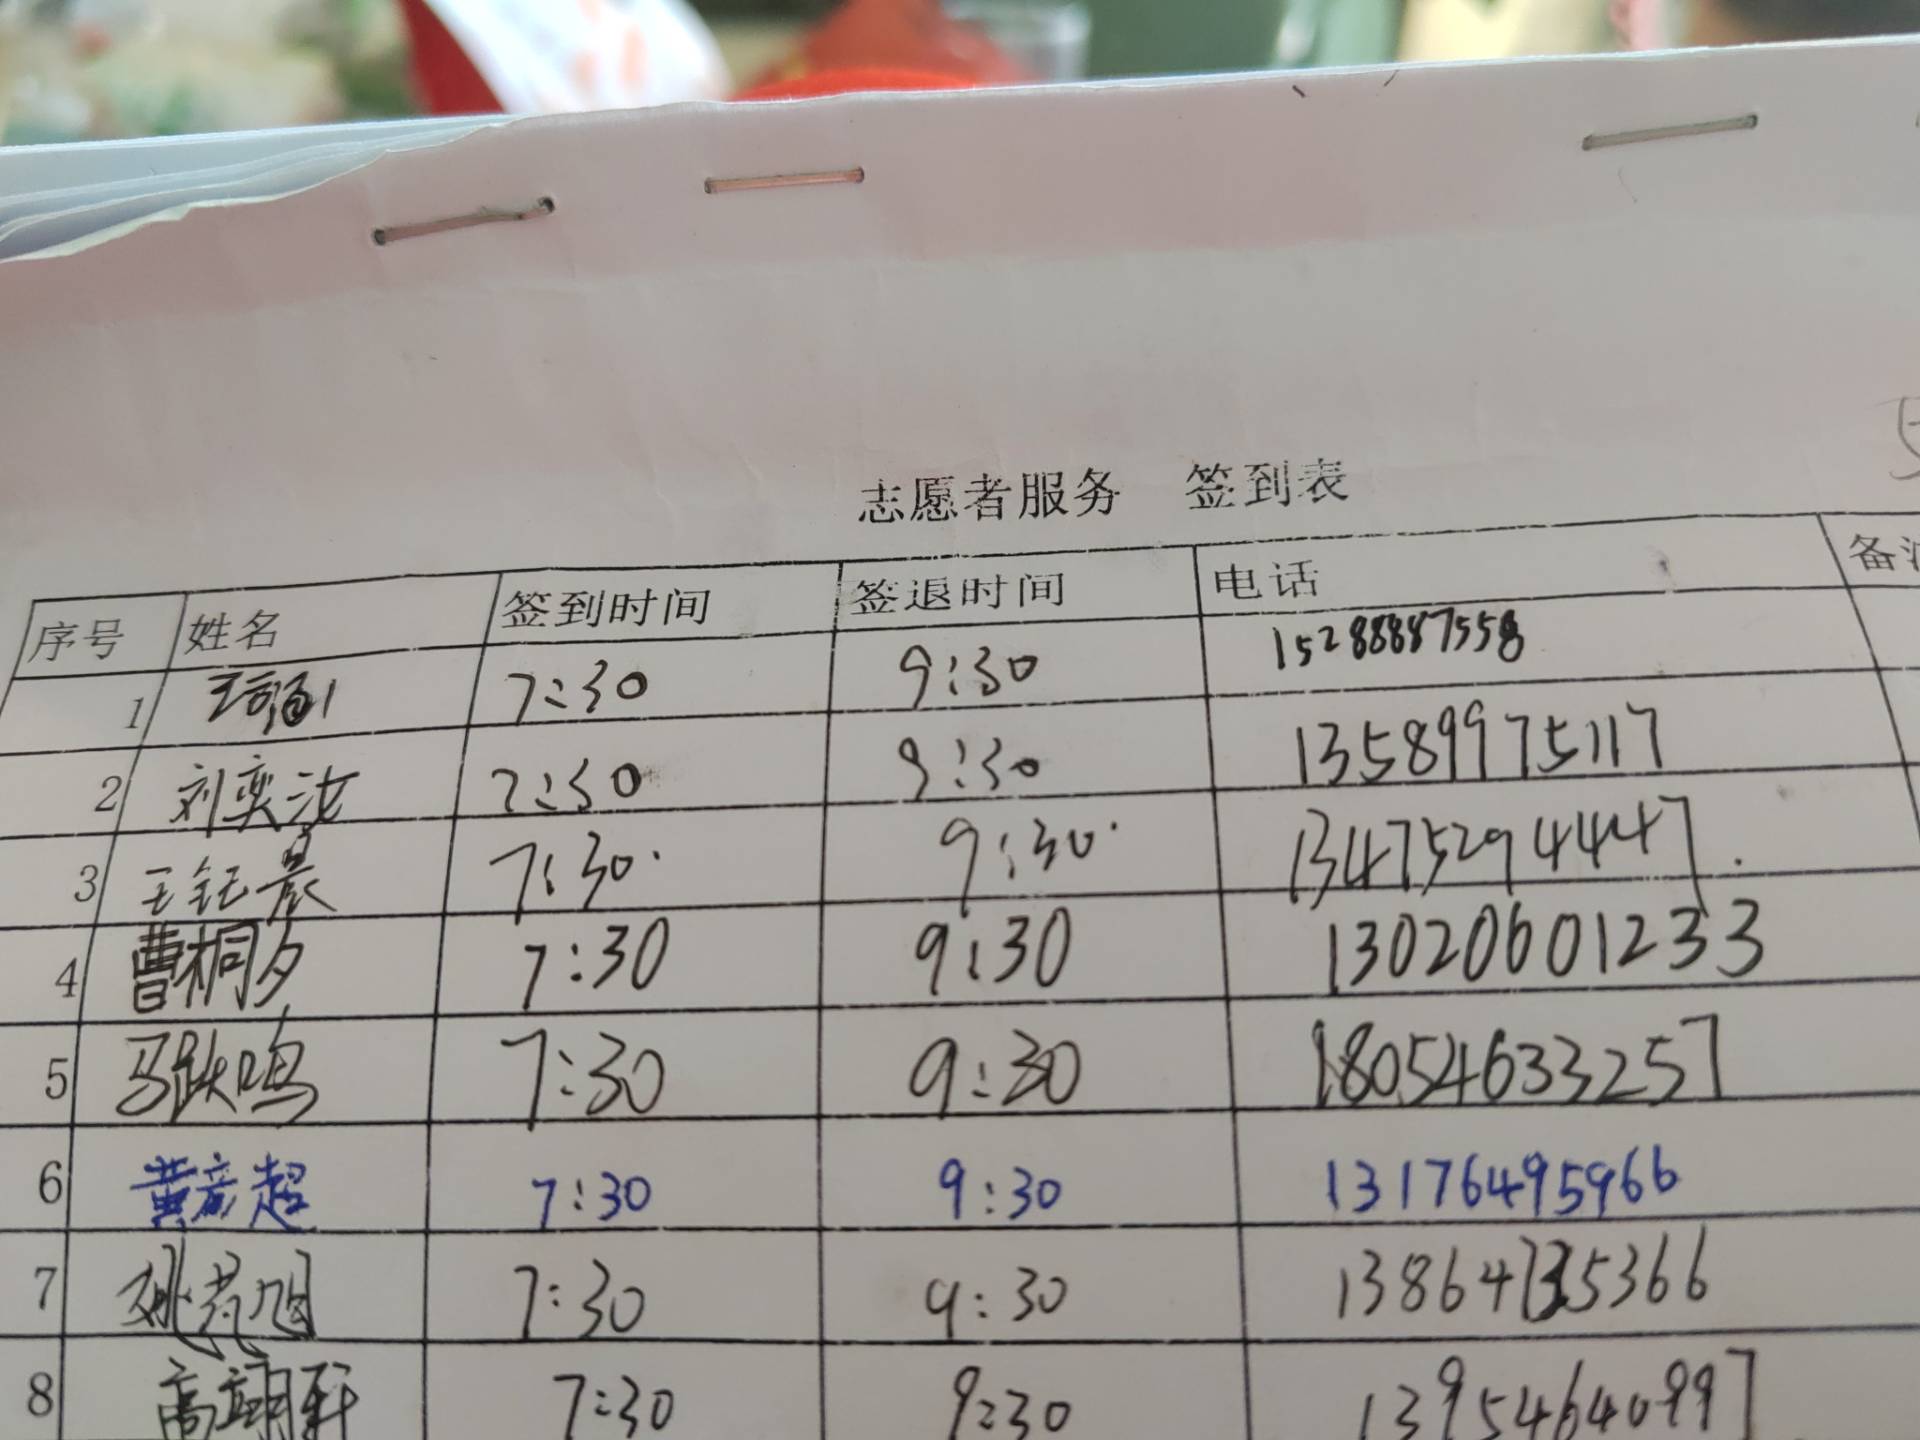 志愿者服务 签到表
序号 姓名 签到时间 签退时间 电话 备注
1 7:30 9:30 15288887558
2 刘奕汝 7:30 9:30 13589975117
3 王钰晨 7:30 9:30 13475294447
4 曹桐夕 7:30 9:30 13020601233
5 马跃鸣 7:30 9:30 18054633257
6 黄彦超 7:30 9:30 13176495966
7 7:30 9:30
8 高翊轩 7:30 9:30 13954640997